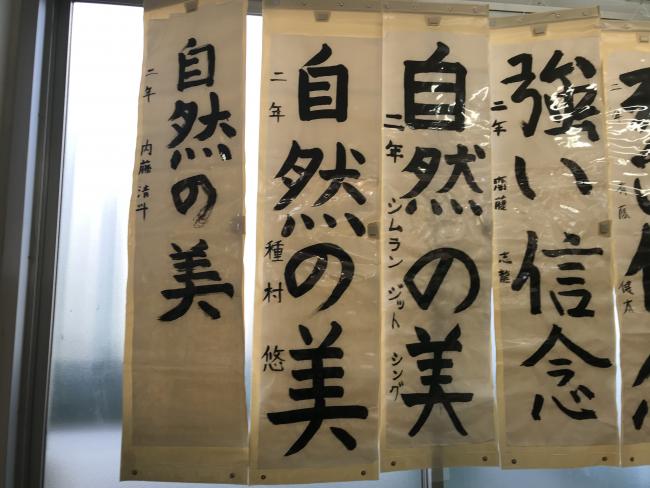 自然の美
二年 内藤清斗
自然の美
二年 種村悠
自然の美
二年 シムラン ジット シング
強い信念
二年 齋藤